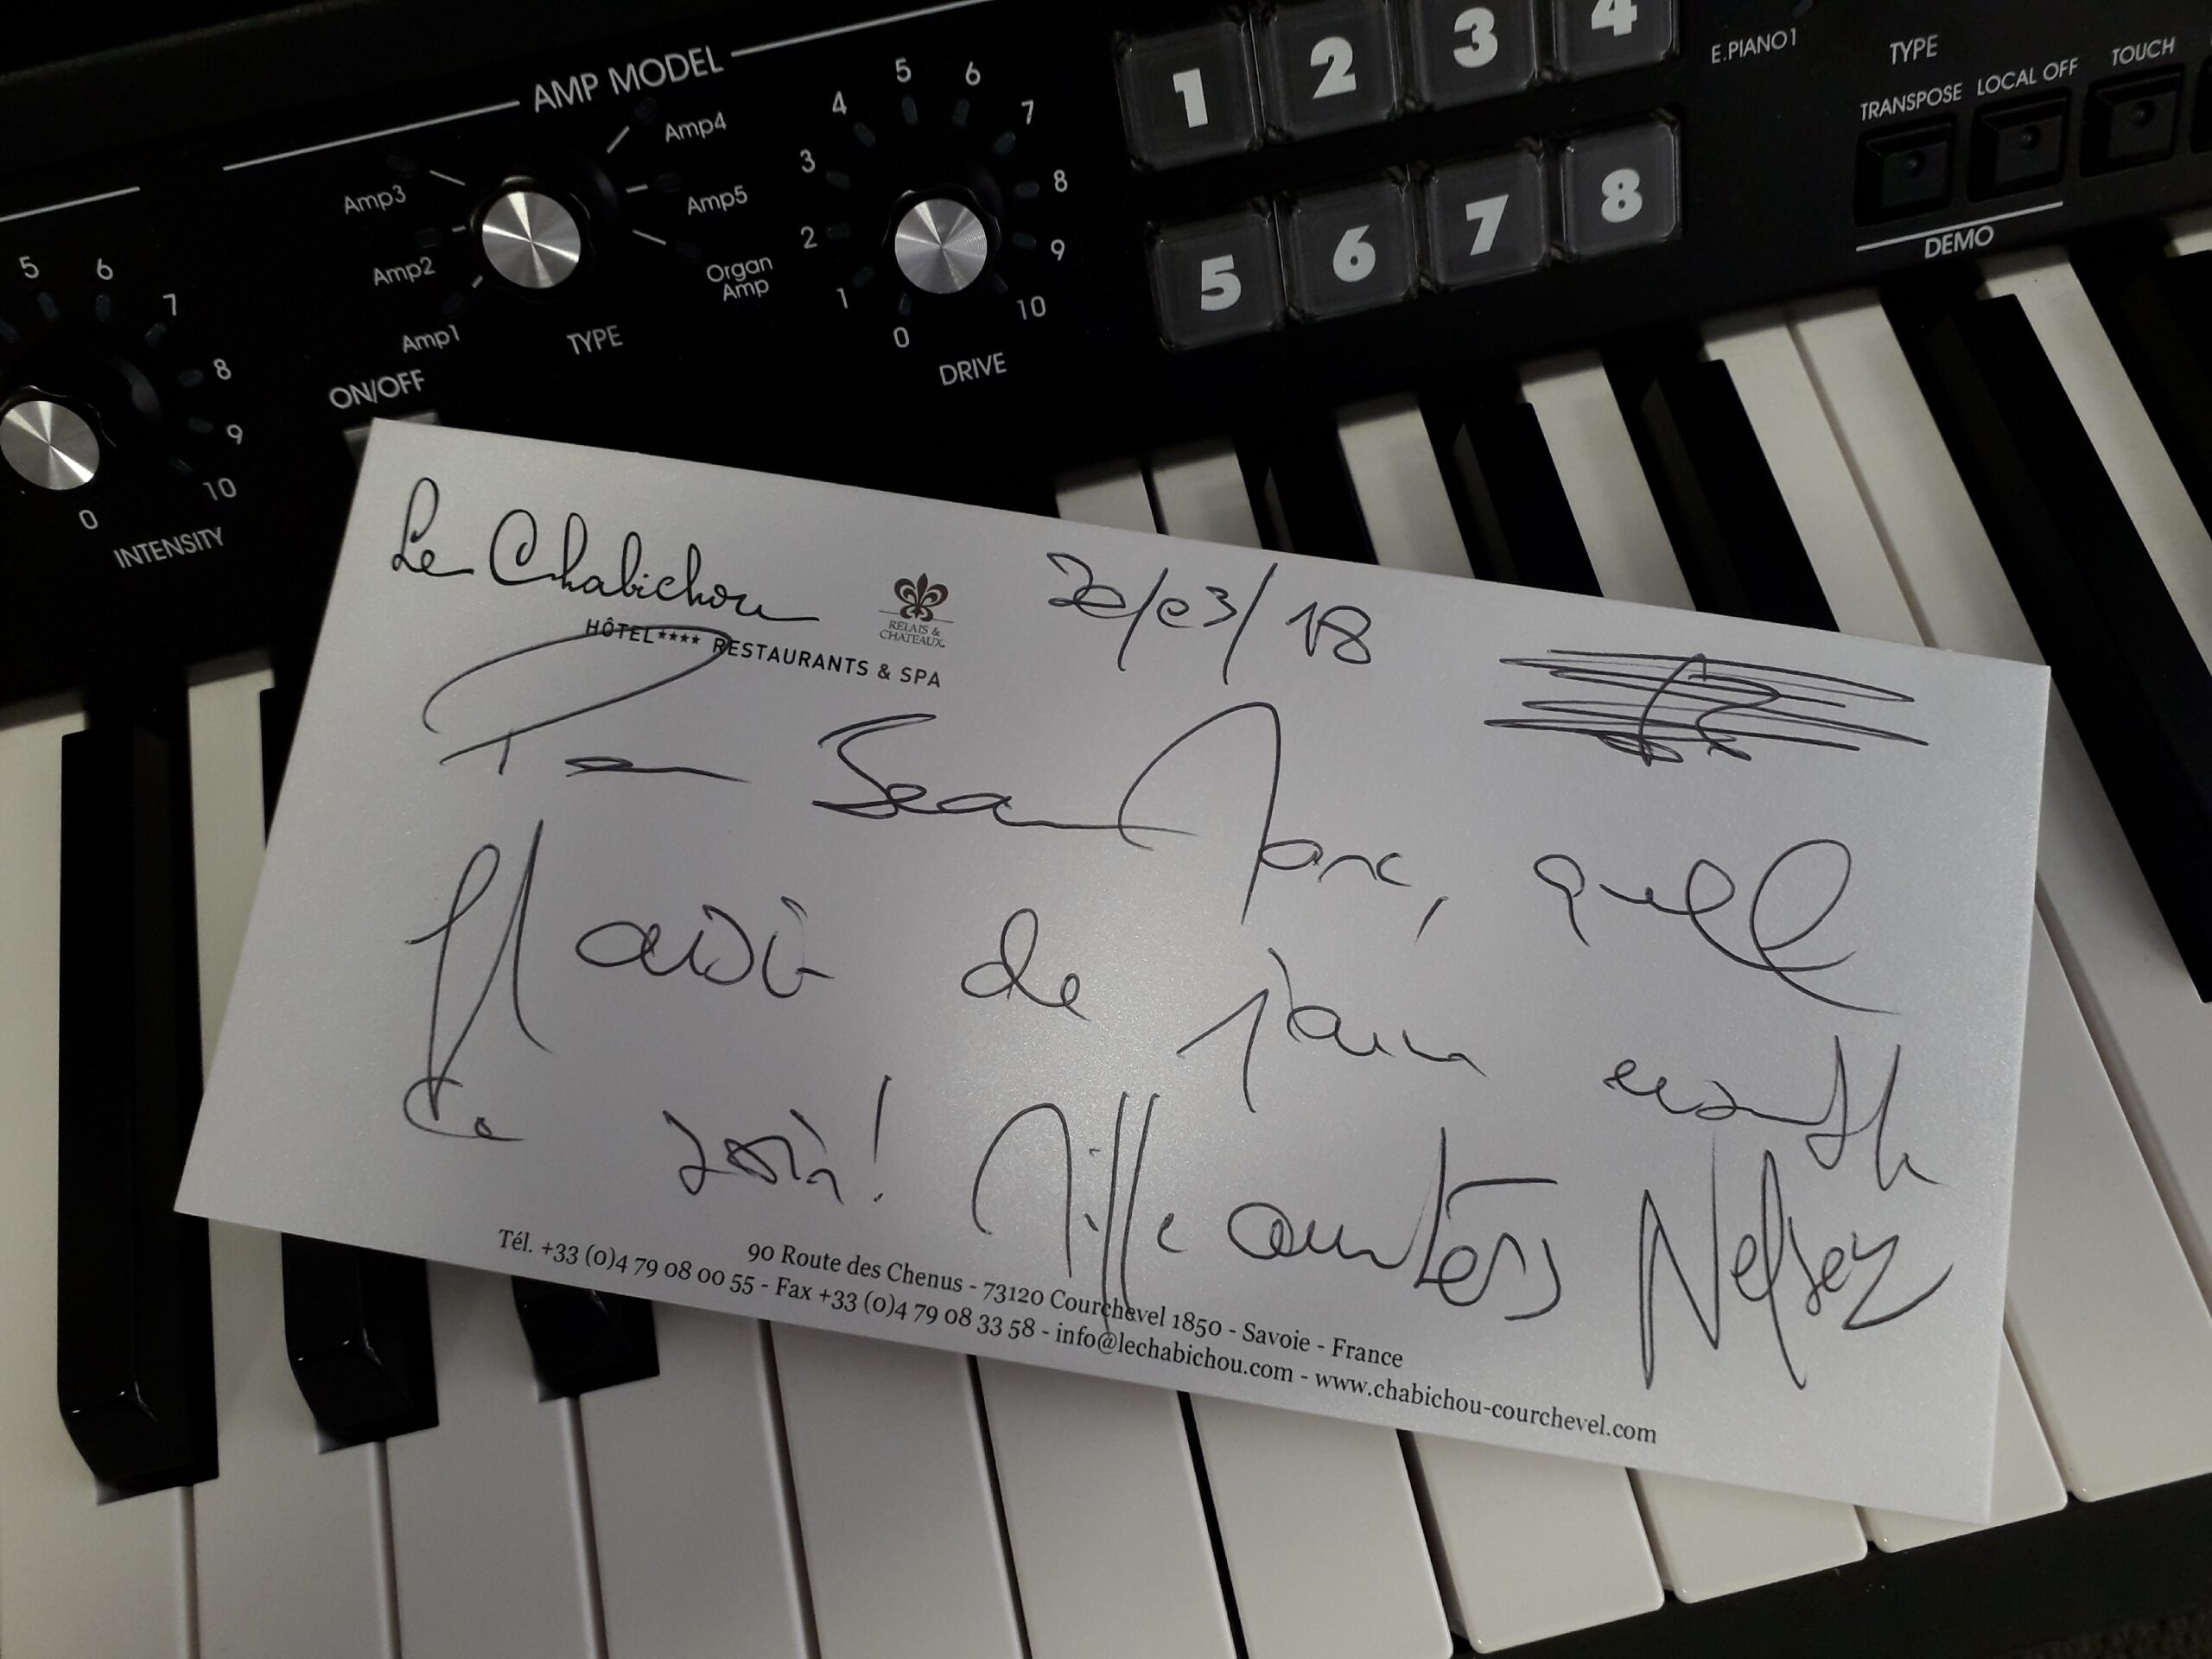 AMP MODEL
1 2 3 4
E.PIANO1
TYPE
TRANSPOSE LOCAL OFF TOUCH
DEMO
Amp1 Amp2 Amp3 Amp4 Amp5 Organ Amp
TYPE
0 1 2 3 4 5 6 7 8 9 10
DRIVE
5 6 7 8
ON/OFF
5 6 7 8 9 10
0
INTENSITY
Le Chabichou
HÔTEL**** RESTAURANTS & SPA
RELAIS &
CHATEAUX
20/03/18
Pour Jean Marc, quel
plaisir de jouer ensemble
ce soir! Mille
90 Route des Chenus - 73120 Courchevel 1850 - Savoie - France
Tél. +33 (0)4 79 08 00 55 - Fax +33 (0)4 79 08 33 58 - info@lechabichou.com - www.chabichou-courchevel.com